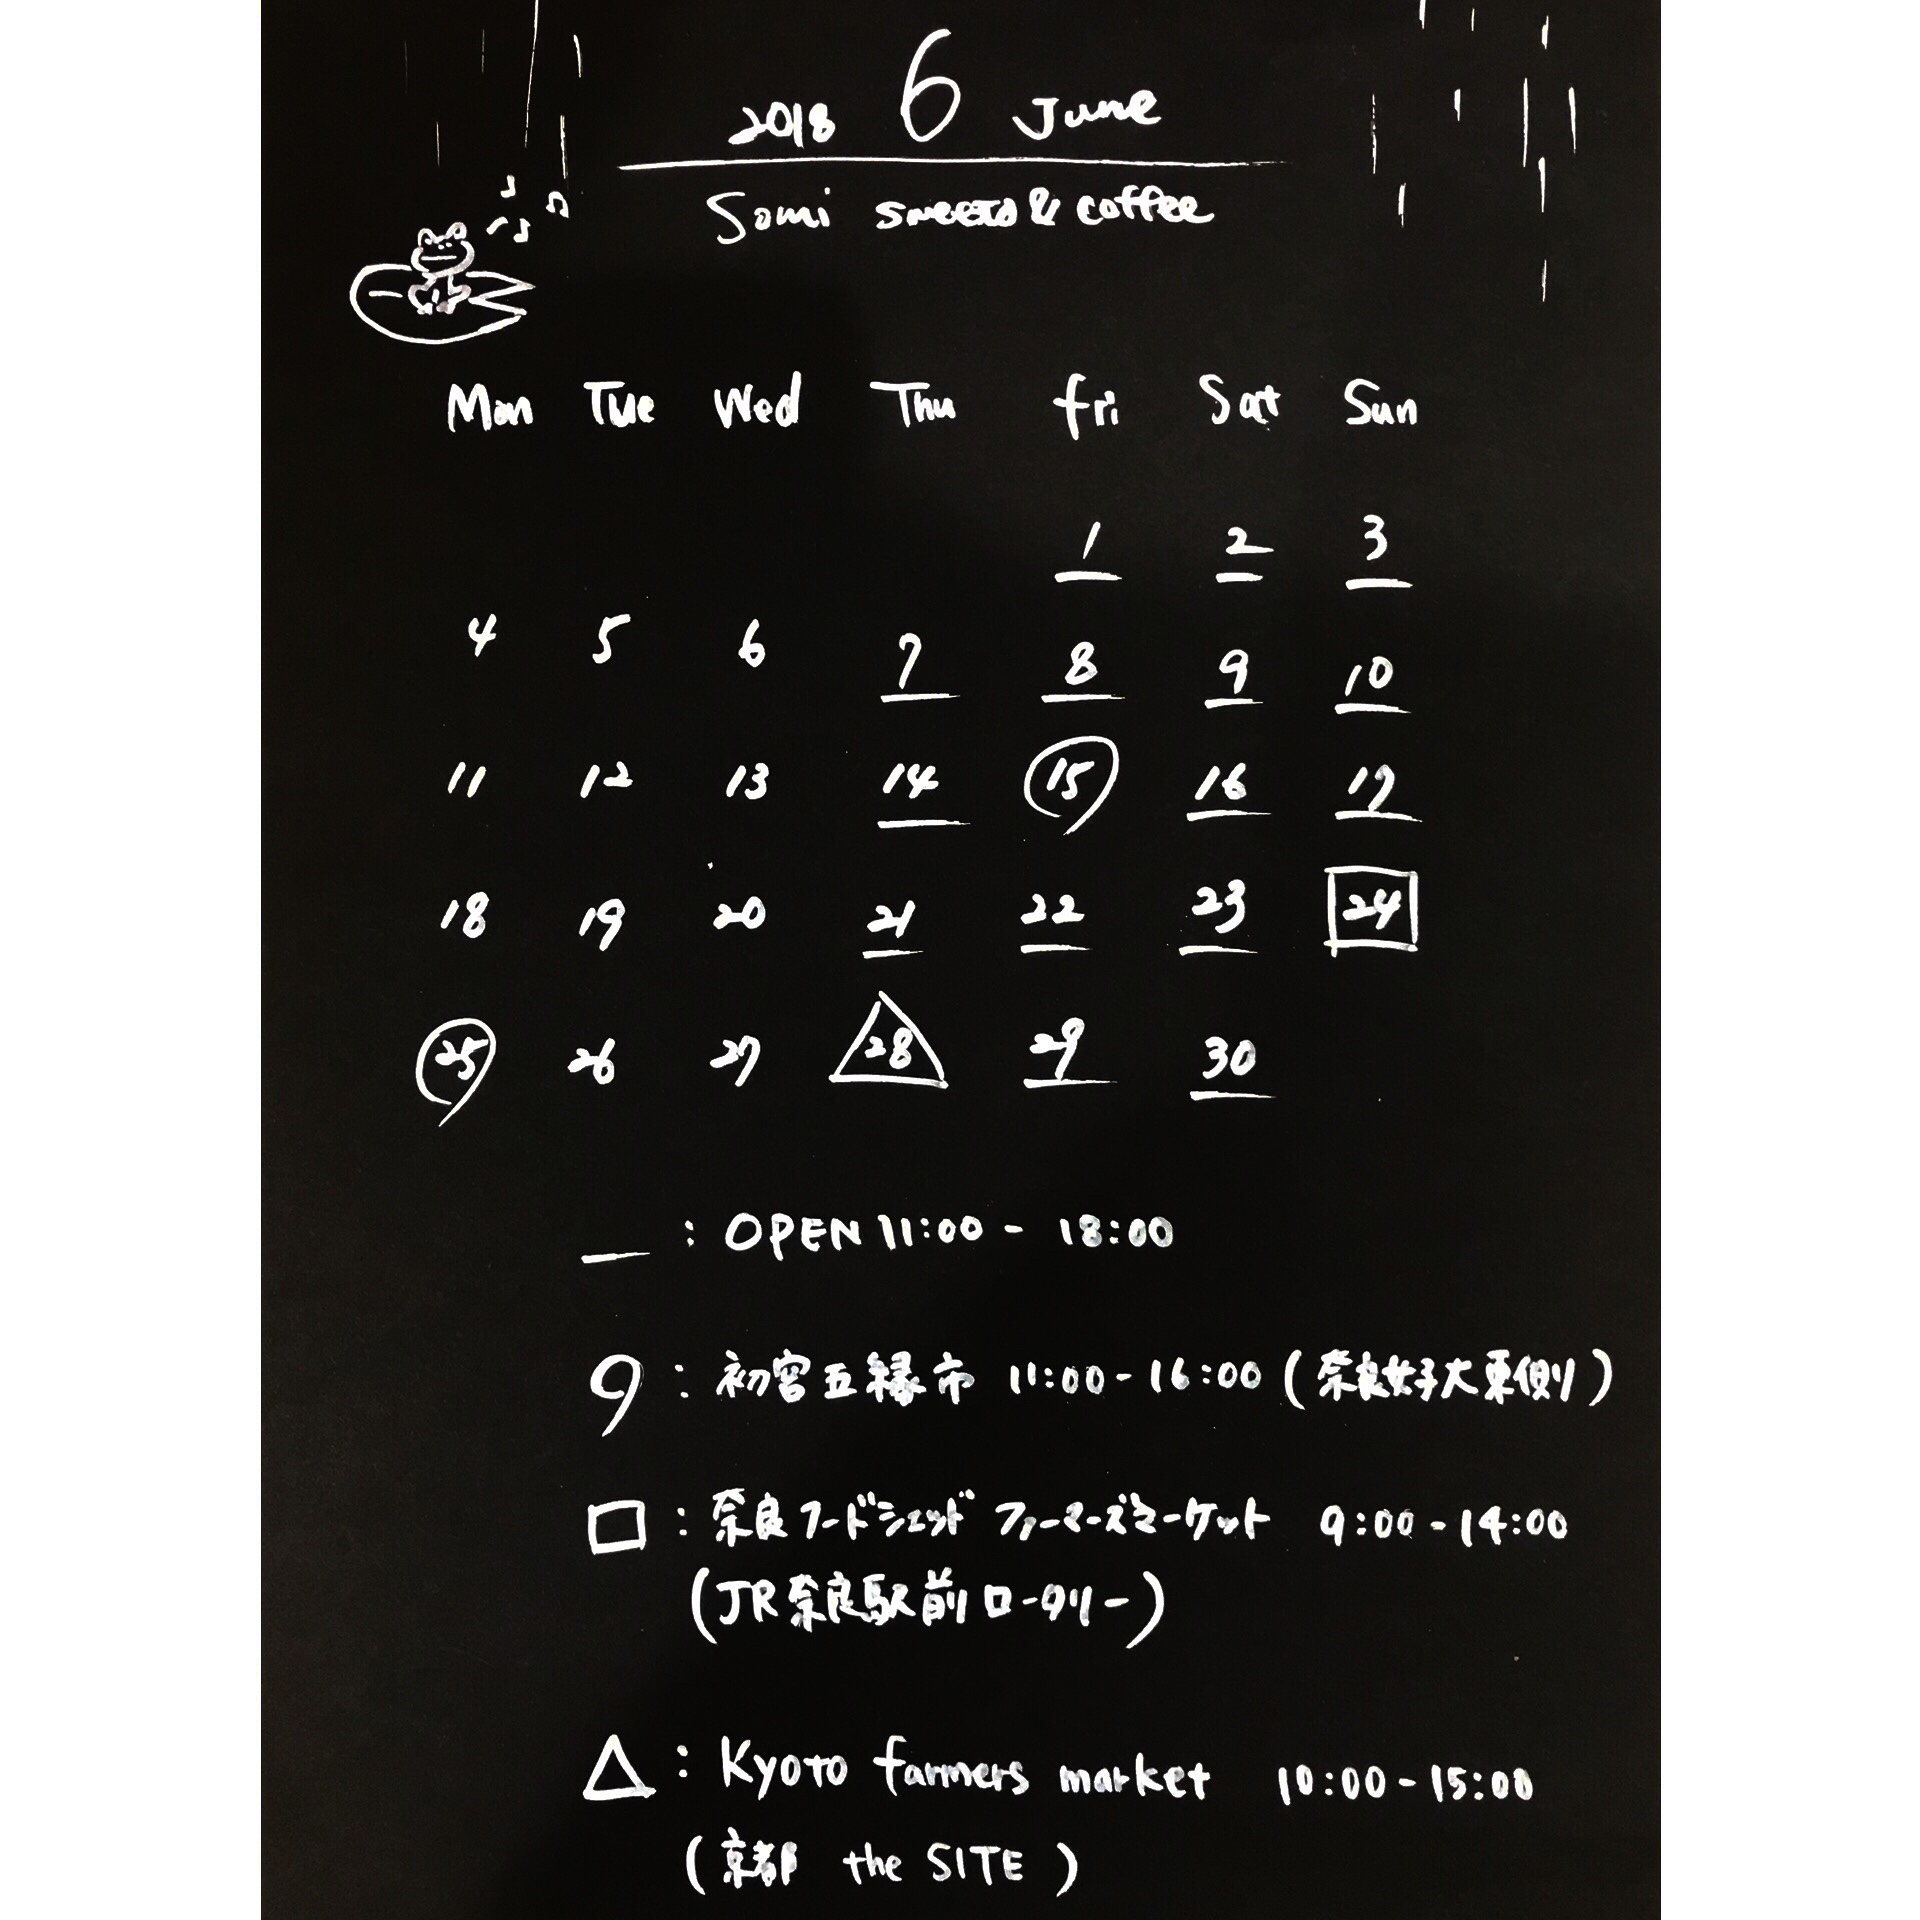 2018 6 June
Somi sweets & coffee
Mon Tue Wed Thu fri Sat Sun
1 2 3
4 5 6 7 8 9 10
11 12 13 14 15 16 17
18 19 20 21 22 23 24
25 26 27 28 29 30
: OPEN 11:00 - 18:00
: 初宮五縁市 11:00-16:00 (奈良女子大東側)
: 奈良フードシェッド ファーマーズマーケット 9:00-14:00
(JR奈良駅前ロータリー)
: Kyoto farmers market 10:00-15:00
(京都 the SITE)